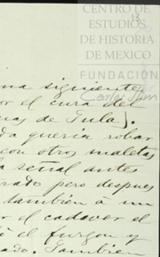 CENTRO DE
ESTUDIOS
DE HISTORIA
DE MEXICO
13
FUNDACIÓN
Carlos Slim
ma siguiente
or el cura del
mas de Tula).
da queria robar
con otros maletas
la señal antes
rado pero despues
también a un
or el cadaver el
ó el furgon y
ado. Tambien